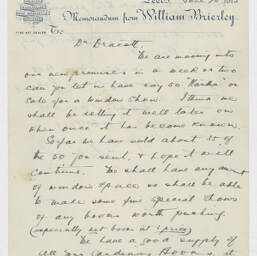 Leeds, June 20
Memorandum from William Brierley
FINE ART DEALER To:
Dr Dracott.
We are moving into
our new premises in a week or two
can you let us have say 50 "Hanka" on
sale for a window show. I think we
shall be selling it well later on
when once it has become known.
So far we have sold about 15 of
the 50 you sent, & hope it will
continue. We shall have any amount
of window space so shall be able
to make some fine special shows
of any books worth pushing
(especially not books at price)
We have a good supply of
all your Gardening Books, &